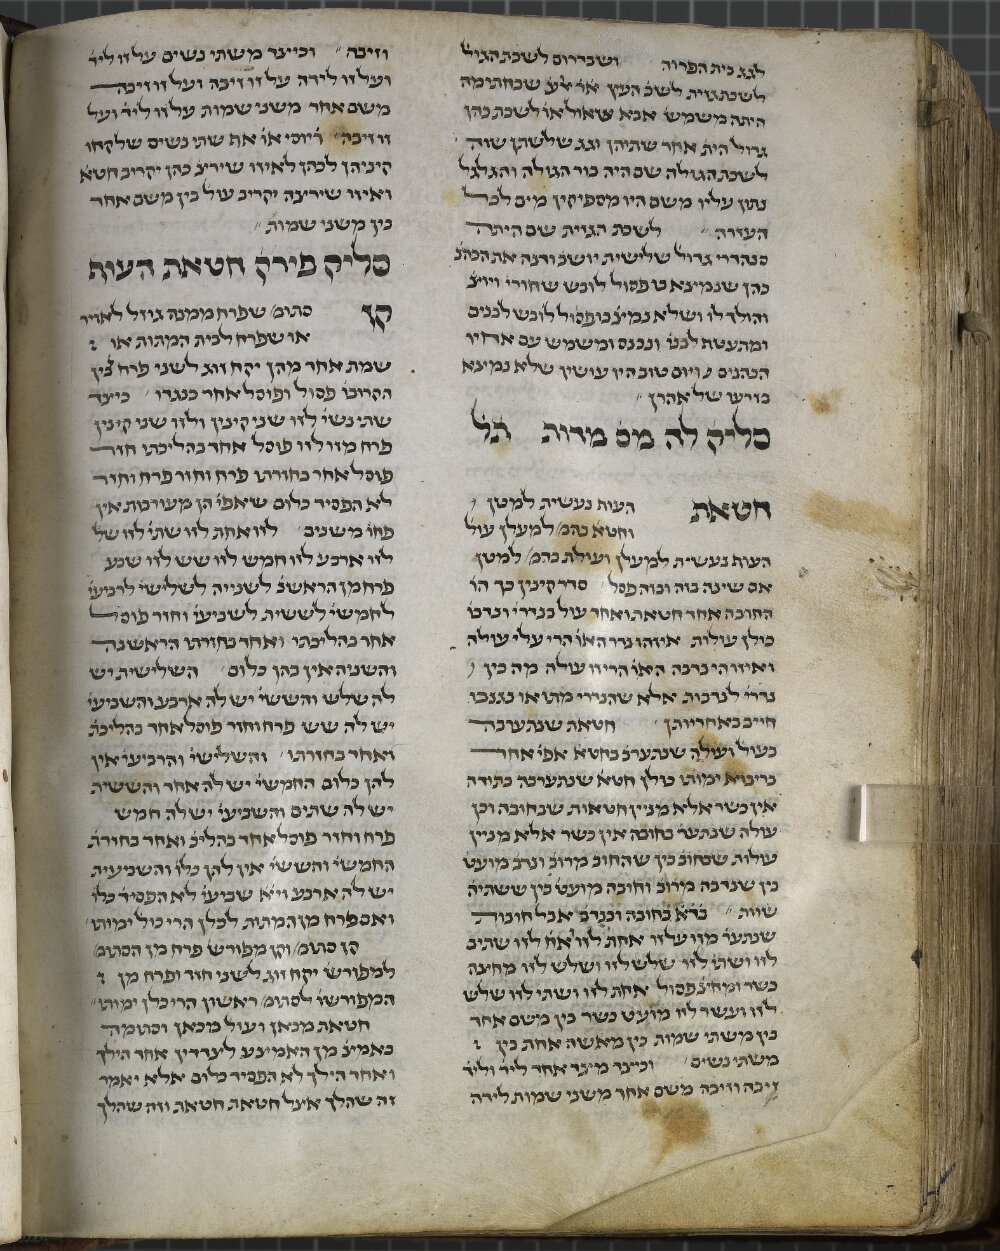 לגג בית הפרוה ושבדרום לשכת הגזיל
לשכת גזית לשכ העץ אר אלע שכחתי מה
היתה משמש אבא שאול או לשכת כהן
גדול היתׄ אחר שתיהן וגג שלשתן שוה
לשכת הגולה שם היה בור הגולה והגלגל
נתון עליו משם היו מספיקין מים לכל
העזרה לשכת הגזית שם היתה
סנהדרי גדול שלישית יושב ודנה את הכהנ
כהן שנמיצא בו פסול לובש שחורי ויוצ
והולך לו ושלא נמיצ בו פסול לובש לבנים
ומתעטף לבני ונכנס ומשמש עם אחיו
הכהנים ויום טוב היו עושין שלא נמיצא
בזרעו של אהרן
סליק לה מס מדות תל
חטאת העוף נעשית למטן
וחטא בהמ למעלן עול
העוף נעשית למעלן ועולת בהמ למטן
אם שינה בזה ובזה פסל סדר קינין כך הו
החובה אחד חטאת ואחד עול בנדרי ונדבו
כולן עולות איזהו נדר האו הרי עלי עולה
ואיזו הי נדבה האו הרי זו עולה מה בין
נדרי לנדבות אלא שהנדרי מתו או נגנבו
חייב באחריותן חטאת שנתערבה
בעול ועולה שנתערב בחטא אפי אחד
בריבוא ימותו כולן חטא שנתערבה בחובה
אין כשר אלא מניין חטאות שבחובה וכן
עולה שנתער בחובה אין כשר אלא מניין
עולות שבחוב בין שהחוב מרוב ונדב מועט
בין שנדבה מרוב וחובה מועט בין ששתיה
שוות בדא בחובה ובנדב אבל חיבור
שנתער מזו על זו אחת לזו ואח לזו שתיב
לזו ושתי לזו שלש לזו ושלש לזו מחיצה
כשר ומחיצ פסול אחת לזו ושתי לזו שלש
לזו ועשר לזו מועט כשר בין משם אחד
בין משתי שמות בין מאשה אחת בין
משתי נשים וכיצד מיצד אחד ליד וליד
זיבה וזיבה משם אחד משני שמות לידה
וזיבה וכייצד משתי נשים על זו ליד
ועל זו לידה על זו זיבה ועל זו זיבה
משם אחד משני שמות על זו ליד ועל
זו זיבה ר יוסי או את שתי נשים שלקחו
קיניהן לכהן לאיזו שירצ כהן יקריב חטא
ואיזו שירצה יקריב עול בין משם אחד
בין משני שמות
סליק פירק חטאת העוף
קן סתומ שפרח ממנה גוזל לאויר
או שפרח לבית המתות או
שמת אחד מהן יקח זוג לשני פרח בין
הקרובו פסול ופוסל אחד כנגדו כיצד
שתי נשי לזו שני קינין ולזו שני קינין
פרח מזו לזו פוסל אחד בהליכתו חזר
פוסל אחד בחזרתו פרח וחזר פרח וחזר
לא הפסיד כלום שאפי הן מעורבות אין
פחו משנים לזו אחת לזו שתי לזו של
לזו ארבע לזו חמש לזו שש לזו שבע
פרח מן הראשנ לשנייה לשלישי לרביעי
לחמשי לששית לשביעי וחזר פוסל
אחד בהליכתו ואחד בחזרתו הראשונה
והשניה אין בהן כלום השלישית יש
לה שלש והששי יש לה ארבע והשביעי
יש לה שש פרח וחזר פוסל אחד בהליכת
ואחד בחזרתו והשלישי והרביעי אין
להן כלום החמשי יש לה אחד והששית
יש לה שתים והשביעי יש לה חמש
פרח וחזר פוסל אחד בהליכ ואחד בחזרת
החמשי והששי אין להן כלו והשביעית
יש לה ארבע ויא שביעי לא הפסיד כלו
ואם פרח מן המתות לכלן הרי כול ימותו
קן סתומ וקן מפורש פרח מן הסתומ
למפורש יקח זוג לשני חזר ופרח מן
המפורש לסתומ ראשון הרי כלן ימותו
חטאת מכאן ועול מכאן וסתומה
באמיצ מן האמיצע ליצדדין אחד הילך
ואחד הילך לא הפסיד כלום אלא יאמר
זה שהלך אצל חטאת חטאת וזה שהלך